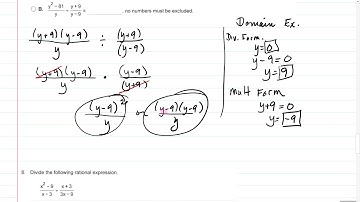 B. y² − 81 / y ÷ y + 9 / y − 9 = , no numbers must be excluded.
(y+9)(y-9) / y ÷ (y+9) / (y-9)
(y+9)(y-9) / y · (y-9) / (y+9)
(y-9)² / y or (y-9)(y-9) / y
Domain Ex.
Div. Form.
y=0
y-9=0
y=9
Mult Form
y+9=0
y=-9
8. Divide the following rational expression.
x² − 9 / x − 3 ÷ x + 3 / 3x − 9